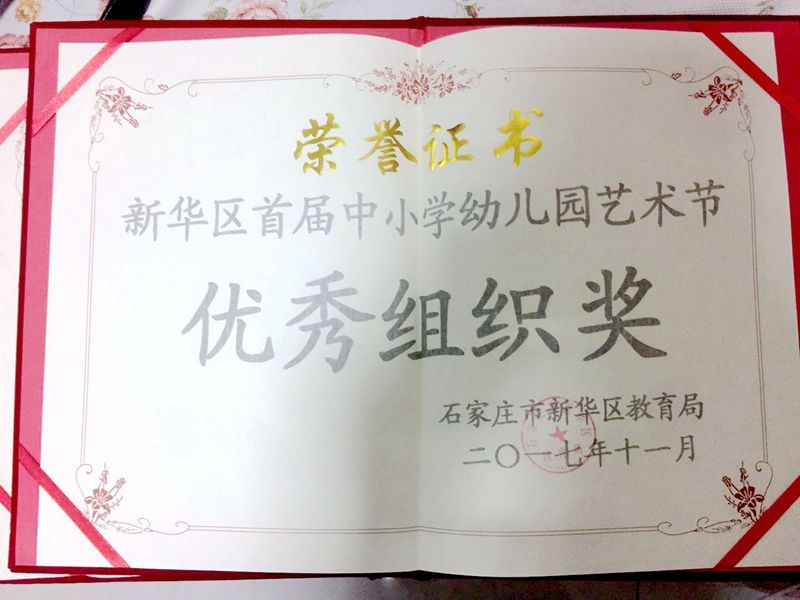 荣誉证书
新华区首届中小学幼儿园艺术节
优秀组织奖
石家庄市新华区教育局
二〇一七年十一月